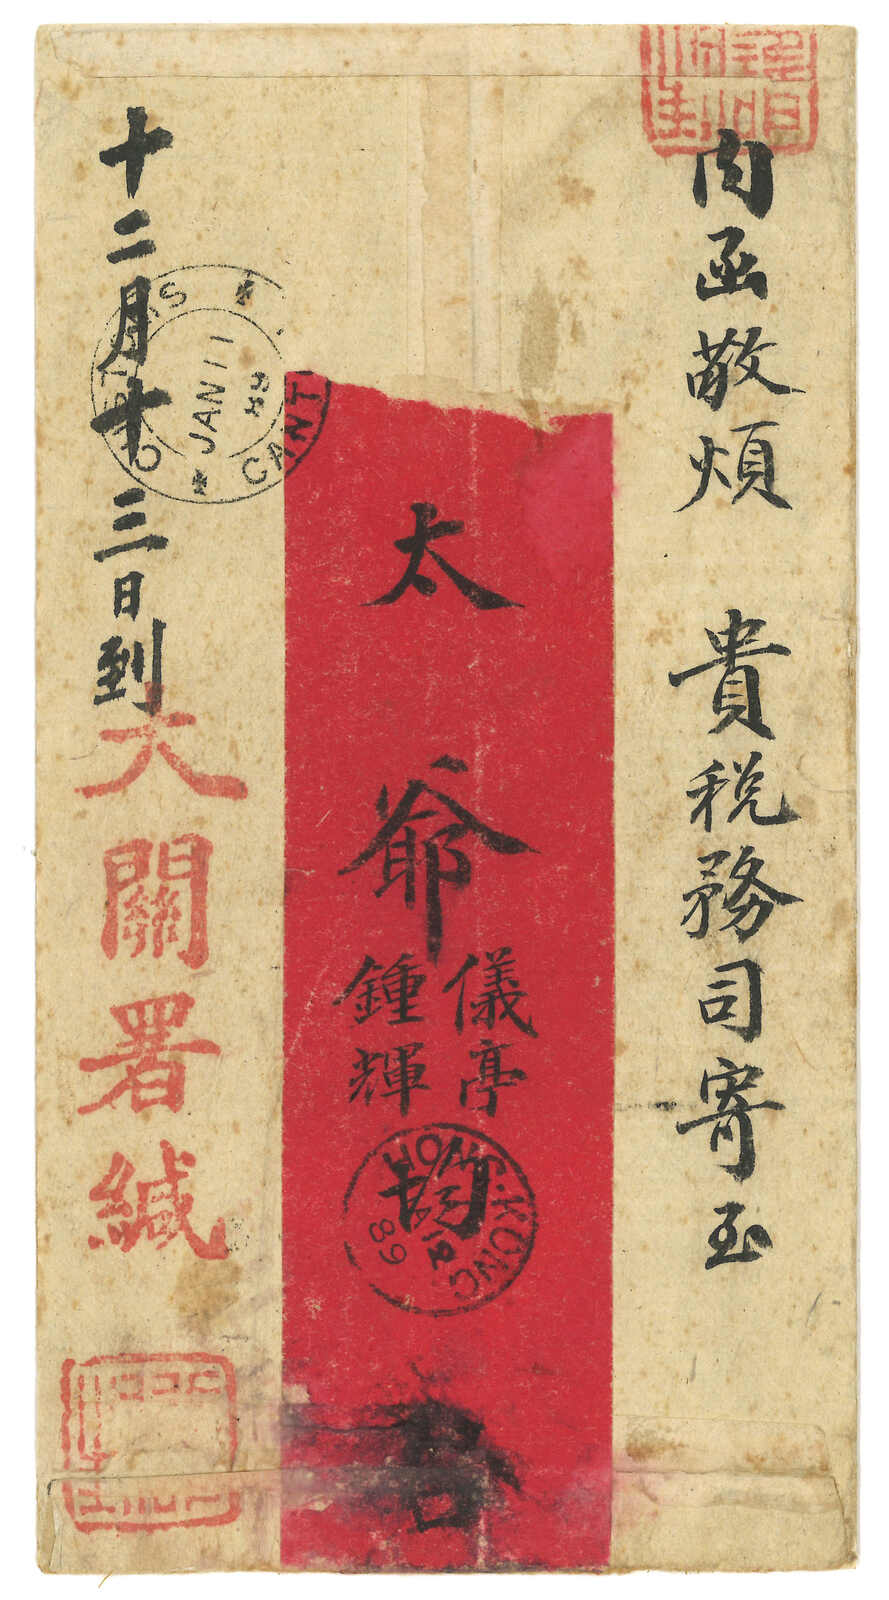 內函敬煩 貴稅務司寄至
太爺
儀亭
鍾輝
均
啓
十二月十三日到
大關署緘
護封
CUSTOMS
CANT
JAN 11
89
HONG-KONG
JA 12
89